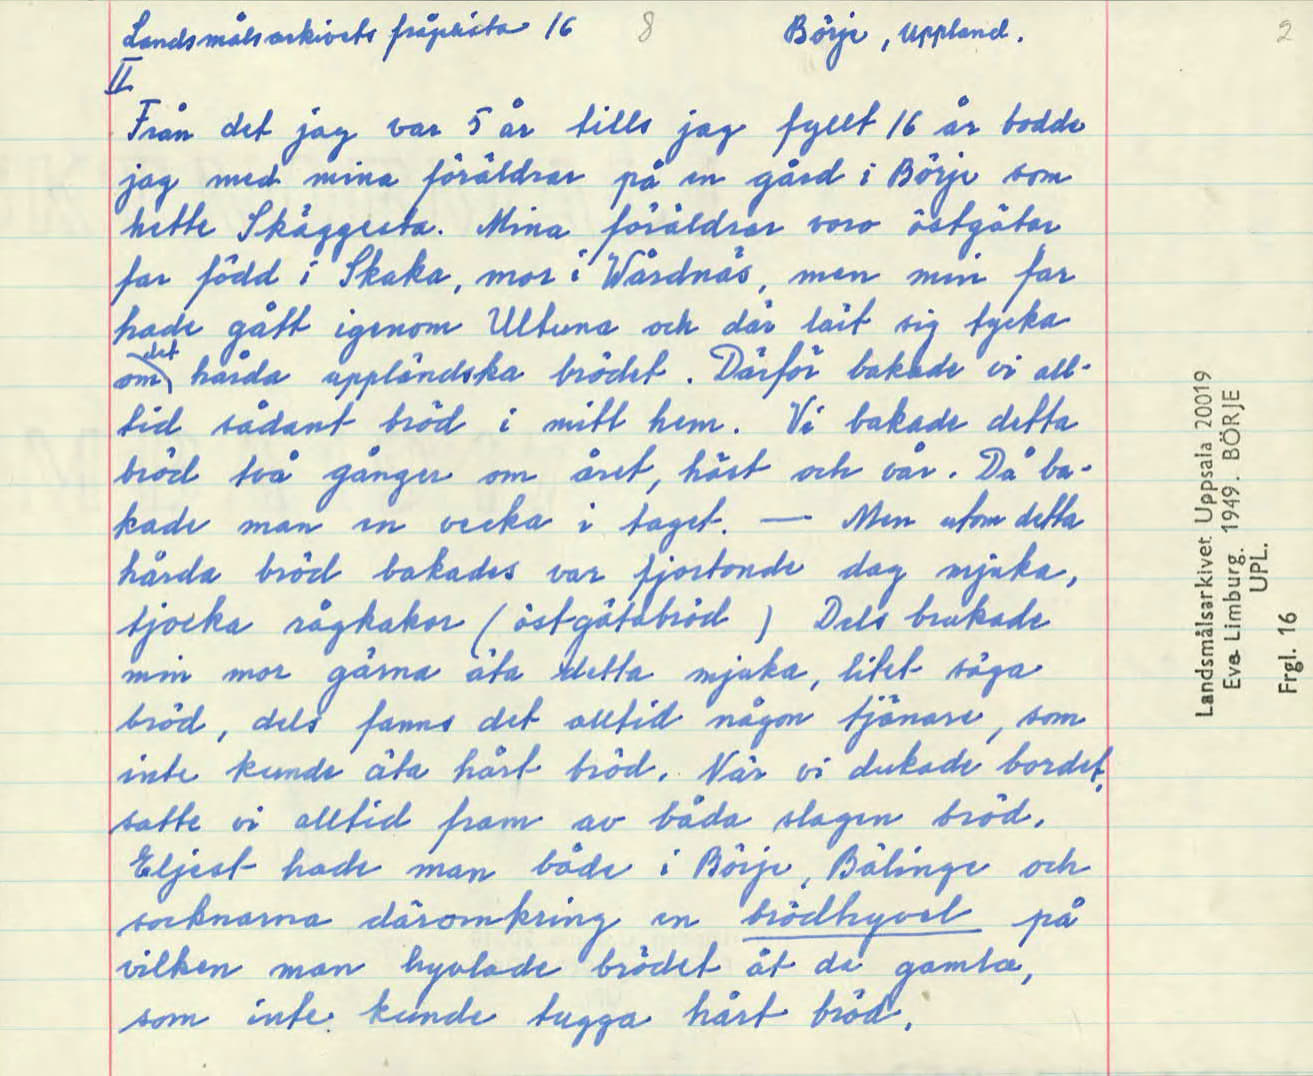 Landsmålsarkivets frågelista 16 8 Börje, Uppland. 2
II
Från det jag var 5 år tills jag fyllt 16 år bodde
jag med mina föräldrar på en gård i Börje som
hette Skäggesta. Mina föräldrar voro östgötar
far född i Skeka, mor i Wårdnäs, men min far
hade gått igenom Ultuna och där lärt sig tycka
om det hårda uppländska brödet. Därför bakade vi all-
tid sådant bröd i mitt hem. Vi bakade detta
bröd två gånger om året, höst och vår. Då ba-
kade man en vecka i taget. — Men utom detta
hårda bröd bakades var fjortonde dag mjuka,
tjocka rågkakor (östgötabröd) Dels brukade
min mor gärna äta detta mjuka, litet söga
bröd, dels fanns det alltid någon tjänare, som
inte kunde äta hårt bröd. När vi dukade bordet,
satte vi alltid fram av båda slagen bröd.
Eljest hade man både i Börje, Bälinge och
socknarna däromkring en brödhyvel på
vilken man hyvlade brödet åt de gamla,
som inte kunde tugga hårt bröd.
Landsmålsarkivet Uppsala 20019
Eva Limburg. 1949. BÖRJE
UPL.
Frgl. 16